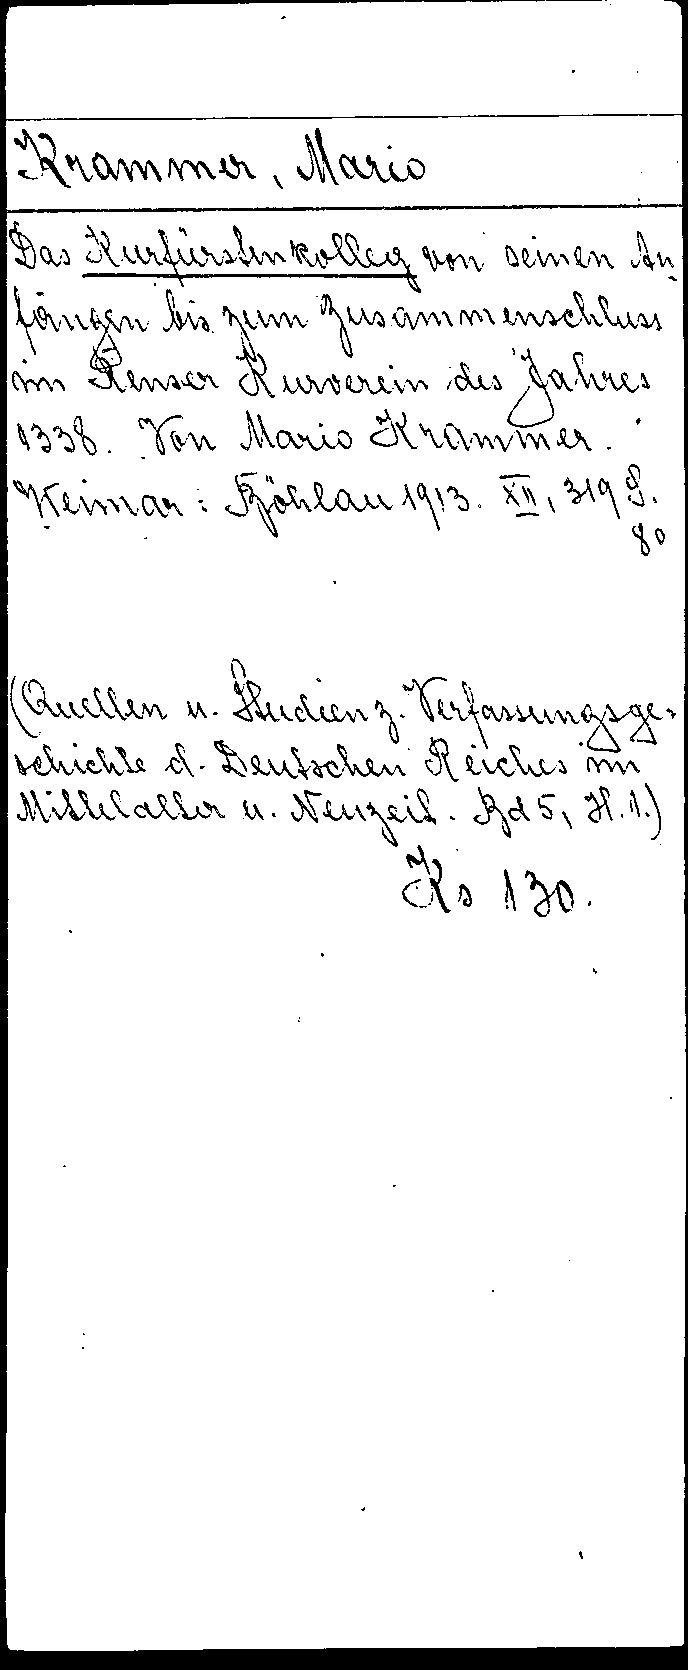 Krammer, Mario
Das Kurfürstenkolleg von seinen An-
fängen bis zum Zusammenschluss
im Renser Kurverein des Jahres
1338. Von Mario Krammer.
Weimar: Böhlau 1913. XII, 319 S.
8°
(Quellen u. Studien z. Verfassungsge-
schichte d. Deutschen Reiches im
Mittelalter u. Neuzeit. Bd 5, H. 1.)
Ks 130.